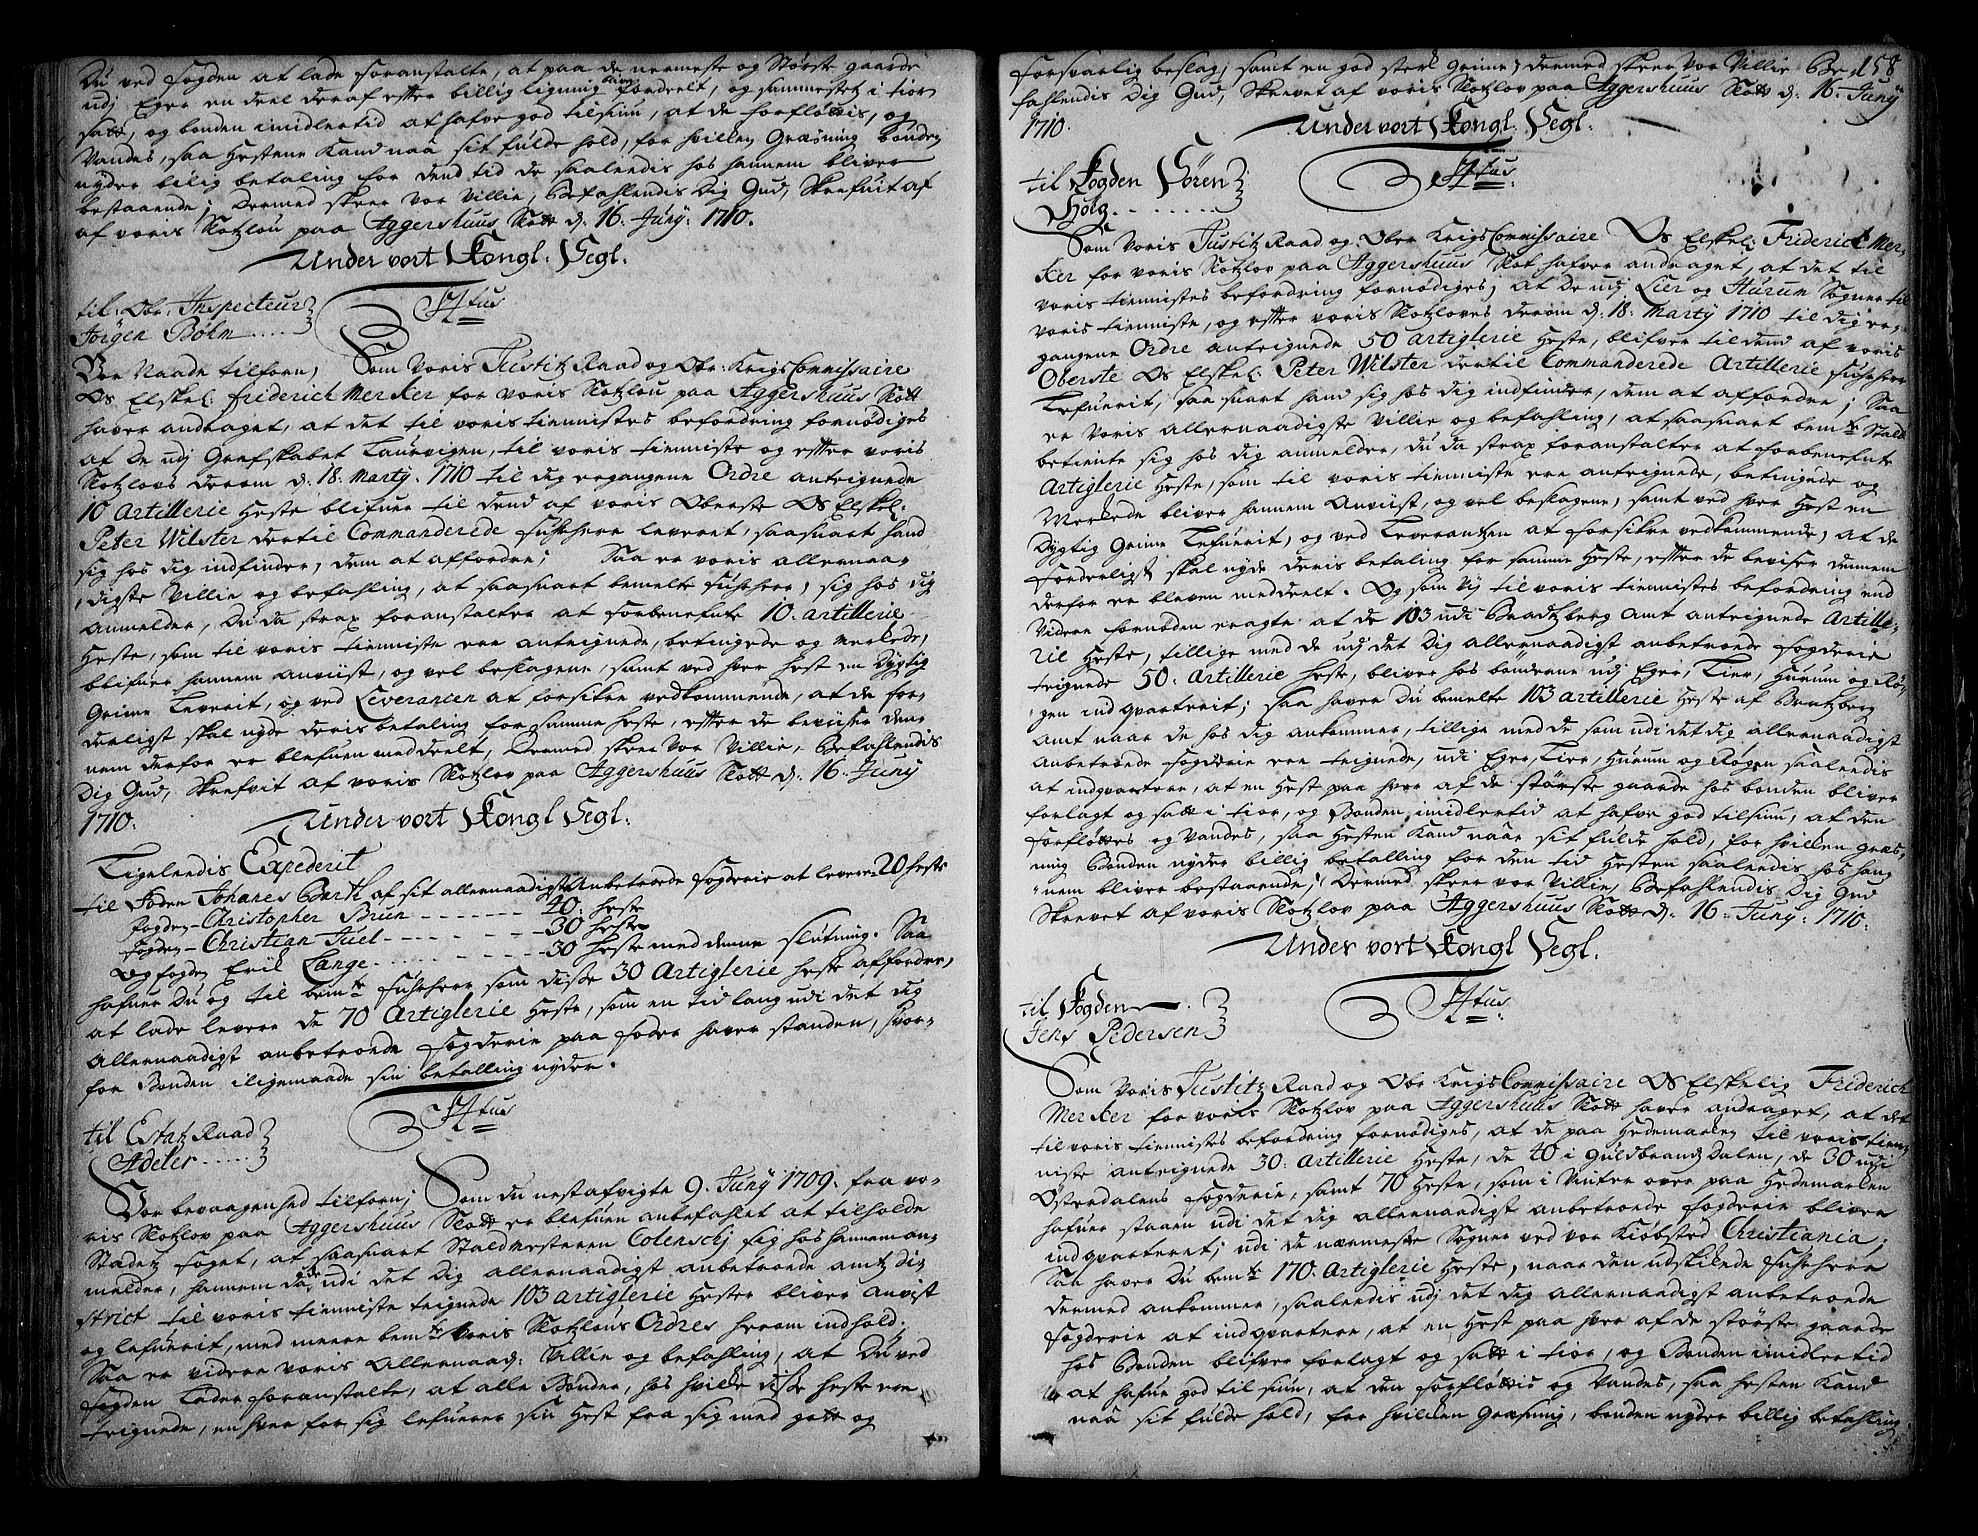 Du ved fogden at lade foranstalte, at paa de nermeste og Störste gaarde
udj Eger en deel deraf efter billig ligning bliver fordeelt, og sammestetz i fior
satt, og bonden imidlertid at hafve god tilsiun, at de forfløttis, og
Vandes, saa Hestene Kand naa sit fulde hold, for hvilken Græsning bonden
nyder bilig betaling for dend tid de saaledis hos hannem bliver
bestaaende; Dermed skeer vor Villie, Befahlendis Dig Gud, Skrefvit af
af voris Slotzlou paa Aggershuus Slott d. 16. Junÿ. 1710.
Under vort Kongl: Segl.
til. Obr: Inspecteur
Jörgen Böhm
F 4tus
Vor Naade tilforn, Som voris Justitz Raad og Obr: Krigs Commissaire
Os Elskel: friderich Merker for voris Slotzlou paa Aggershuus Slott
haver andraget, at det til voris tienistes befordring fornödiges
at De udj Grefskabet Laurvigen, til voris tienniste og efter voris
Slotzlovs derom d. 18. Marty. 1710 til dig ergangene Ordre antegnede
10 Artillerie Heste blifver til dend af voris Oberste Os Elskel:
Peter Wilster dertil Commanderede fuhrherr leveret, saasnart hand
sig hos dig indfinder, dem at affordre; Saa er voris allernaa-
digste Villie og befahling, at saasnart bemelte fuhrherr, sig hos dig
anmelder, Du da strax foranstalter at forbenefnte 10. artillerie
Heste, som til voris tienniste ere antegnede, betingede og merkede,
blifver hannem anviist, og vel beslagene, samt ved hver hest en dygtig
Grime Leverit, og ved Leverancen at forsikre vedkommende, at de for-
derligst skal nyde deris betaling for samme heste, efter de beviiser den-
nem derfor er blefven meddeelt, Dermed skeer Vor Villie, Befahlendis
Dig Gud, Skrefvit af voris Slotzlov paa Aggershuus Slott d. 16. Junÿ
1710.
Under vort Kongl Segl.
Ligelendis Expederit
til Foden Johanes Barth af sit allernaadigst Anbetroede fogderie at levere 20 heste
fogden - Christopher Brun - - - - - - - 40: heste
fogden - Christian Juel - - - - - - - 30 heste
Og fogden Erik Lange - - - - - - - 30 heste med denne slutning. Saa
hafver Du og til bemte fuhrherr som disse 30 Artiglerie heste affordre,
at lade levere de 70 Artiglerie Heste, som en tid lang udi det dig
Allernaadigst anbetroede fogderie paa foder haver standen, hvor-
for Bonden iligemaade sin betalling nyder.
F 4tus
til Estatz Raad
Adeler
Vor bevaagenhed tilforn; Som du nest afvigte 9. Junÿ 1709. fra vo-
ris Slotzlov paa Aggershuus Slott er blefven anbefahlet at tilholde
Stadens foget, at saasnart Staldmesteren Colenschj sig hos hannem an-
melder, hannem da de udi det Dig allernaadigst anbetroede amtz di-
strict til voris tienniste tegnede 103 artiglerie Hester bliver anvist
og lefverit, med meere bemte voris Slotzlous Ordres herom indhold;
Saa er videre voris Allernaad: Villie og befahling, at Du ved
fogden Lader foranstalte, at alle Bönder, hos hvilke disse heste ere
tegnede, enhver for sig lefverer sin Hest fra sig med gott og
158
forsvarlig beslag, samt en god sterk Grime; dermed skeer vor Villie Be-
fahlendis Dig Gud, Skrevet af voris Slotzlov paa Aggershuus Slott d. 16. Junÿ
1710.
Under vort Kongl. Segl.
til Fogden Sören
Holg
F 4tus
Som voris Justitz Raad og Ober Krigs Commissaire Os Elskel: Friderich Mer-
ker for voris Slotzlov paa Aggershuus Slot hafver andraget, at det til
voris tiennistes befordring fornödiges, at De udj Lier og Hurum Sogner til
voris tienniste, og efter voris Slotzloves derom d. 18. Marty 1710 til dig er-
gangene Ordre antegnede 50 artiglerie Heste, blifver til dend af voris
Oberste Os Elskel: Peter Wilster dertil Commanderede Artillerie fuhrherr
Lefverit, saa snart hand sig hos dig indfinder, dem at affordre; Saa
er voris allernaadigste Villie og befahling, at saasnart bemte Stald
betiente sig hos dig anmelder, du da strax foranstalter at forbenefnte
Artiglerie Heste, som til voris tienniste ere antegnede, betingede og
Merkede bliver hannem Anviist, og vel beslagene, samt ved hver Hest en
dygtig Grime Lefverit, og ved Leverandzen at forsikre vedkommende, at de
forderligst skal nyde deris betaling for samme Heste, efter de beviser dennem
derfor er bleven meddeelt. Og som vy til voris tiennistes befordring end
videre fornöden eragte at de 103 udi Bradtzberg Amt antegnede Artille-
rie Heste, tillige med de udj det Dig allernaadigst anbetroede fogderie
tegnede 50. Artillerie heste, bliver hos bönderne udj Eger, Lier, Hurum og Rö-
gen indqvarterit; saa haver Du bemelte 103 artillerie Heste af Bratzberg
Amt naar de hos dig ankommer, tillige med de som udi det dig allernaadigst
Anbetroede fogderie ere tegnede, udi Eger, Lier, Hurum og Rögen saaledis
at indqvartere, at en Hest paa hver af de störste gaarde hos bonden bliver
forlagt og satt i fior, og Bonden imidlertid at hafve god tilsiun, at den
forfløttes og vandes, saa Hesten Kand naae sit fulde hold, for hvilken græs-
ning Bonden nyder billig betalling for den tid Hesten saaledis hos han-
nem bliver bestaaende; Dermed skeer vor Villie, Befahlendis Dig Gud
Skrevet af voris Slotzlov paa Aggershuus Slott d. 16. Junÿ. 1710.
Under vort Kongl Segl.
til Fogden
Jens Pedersen
F 4tus
Som voris Justitz Raad og Obr Krigs Commissaire Os Elskelig Friderich
Merker for voris Slotzlov paa Aggershuus Slott haver andraget, at det
til voris tiennistes befordring fornödiges, at de paa Hedemarken til voris tien-
niste antegnede 30. Artillerie Heste, de 40 i Guldbrandz Dalen, de 30 udi
Österdalens fogderie, samt 70 Heste, som i Vinter over paa Hedemarken
hafver staaen udi det dig allernaadigst anbetroede fogderie bliver
indqvarteret; udi de nærmeste Sogner ved vor Kiöbsted Christiania;
Saa haver Du bemte 170. Artiglerie Heste, naar den udskikede fuhrherre
dermed ankommer, saaledis udj det dig allernaadigst anbetroede
fogderie at indqvartere, at en Hest paa hver af de störste gaarde
hos Bonden blifver forlagt og satt i fior, og Bonden imidlertid
at hafve god til siun, at den forfløttis og vandes, saa hesten Kand
naa sit fulde hold, for hvilken Græsning, bonden nyder billig betahling